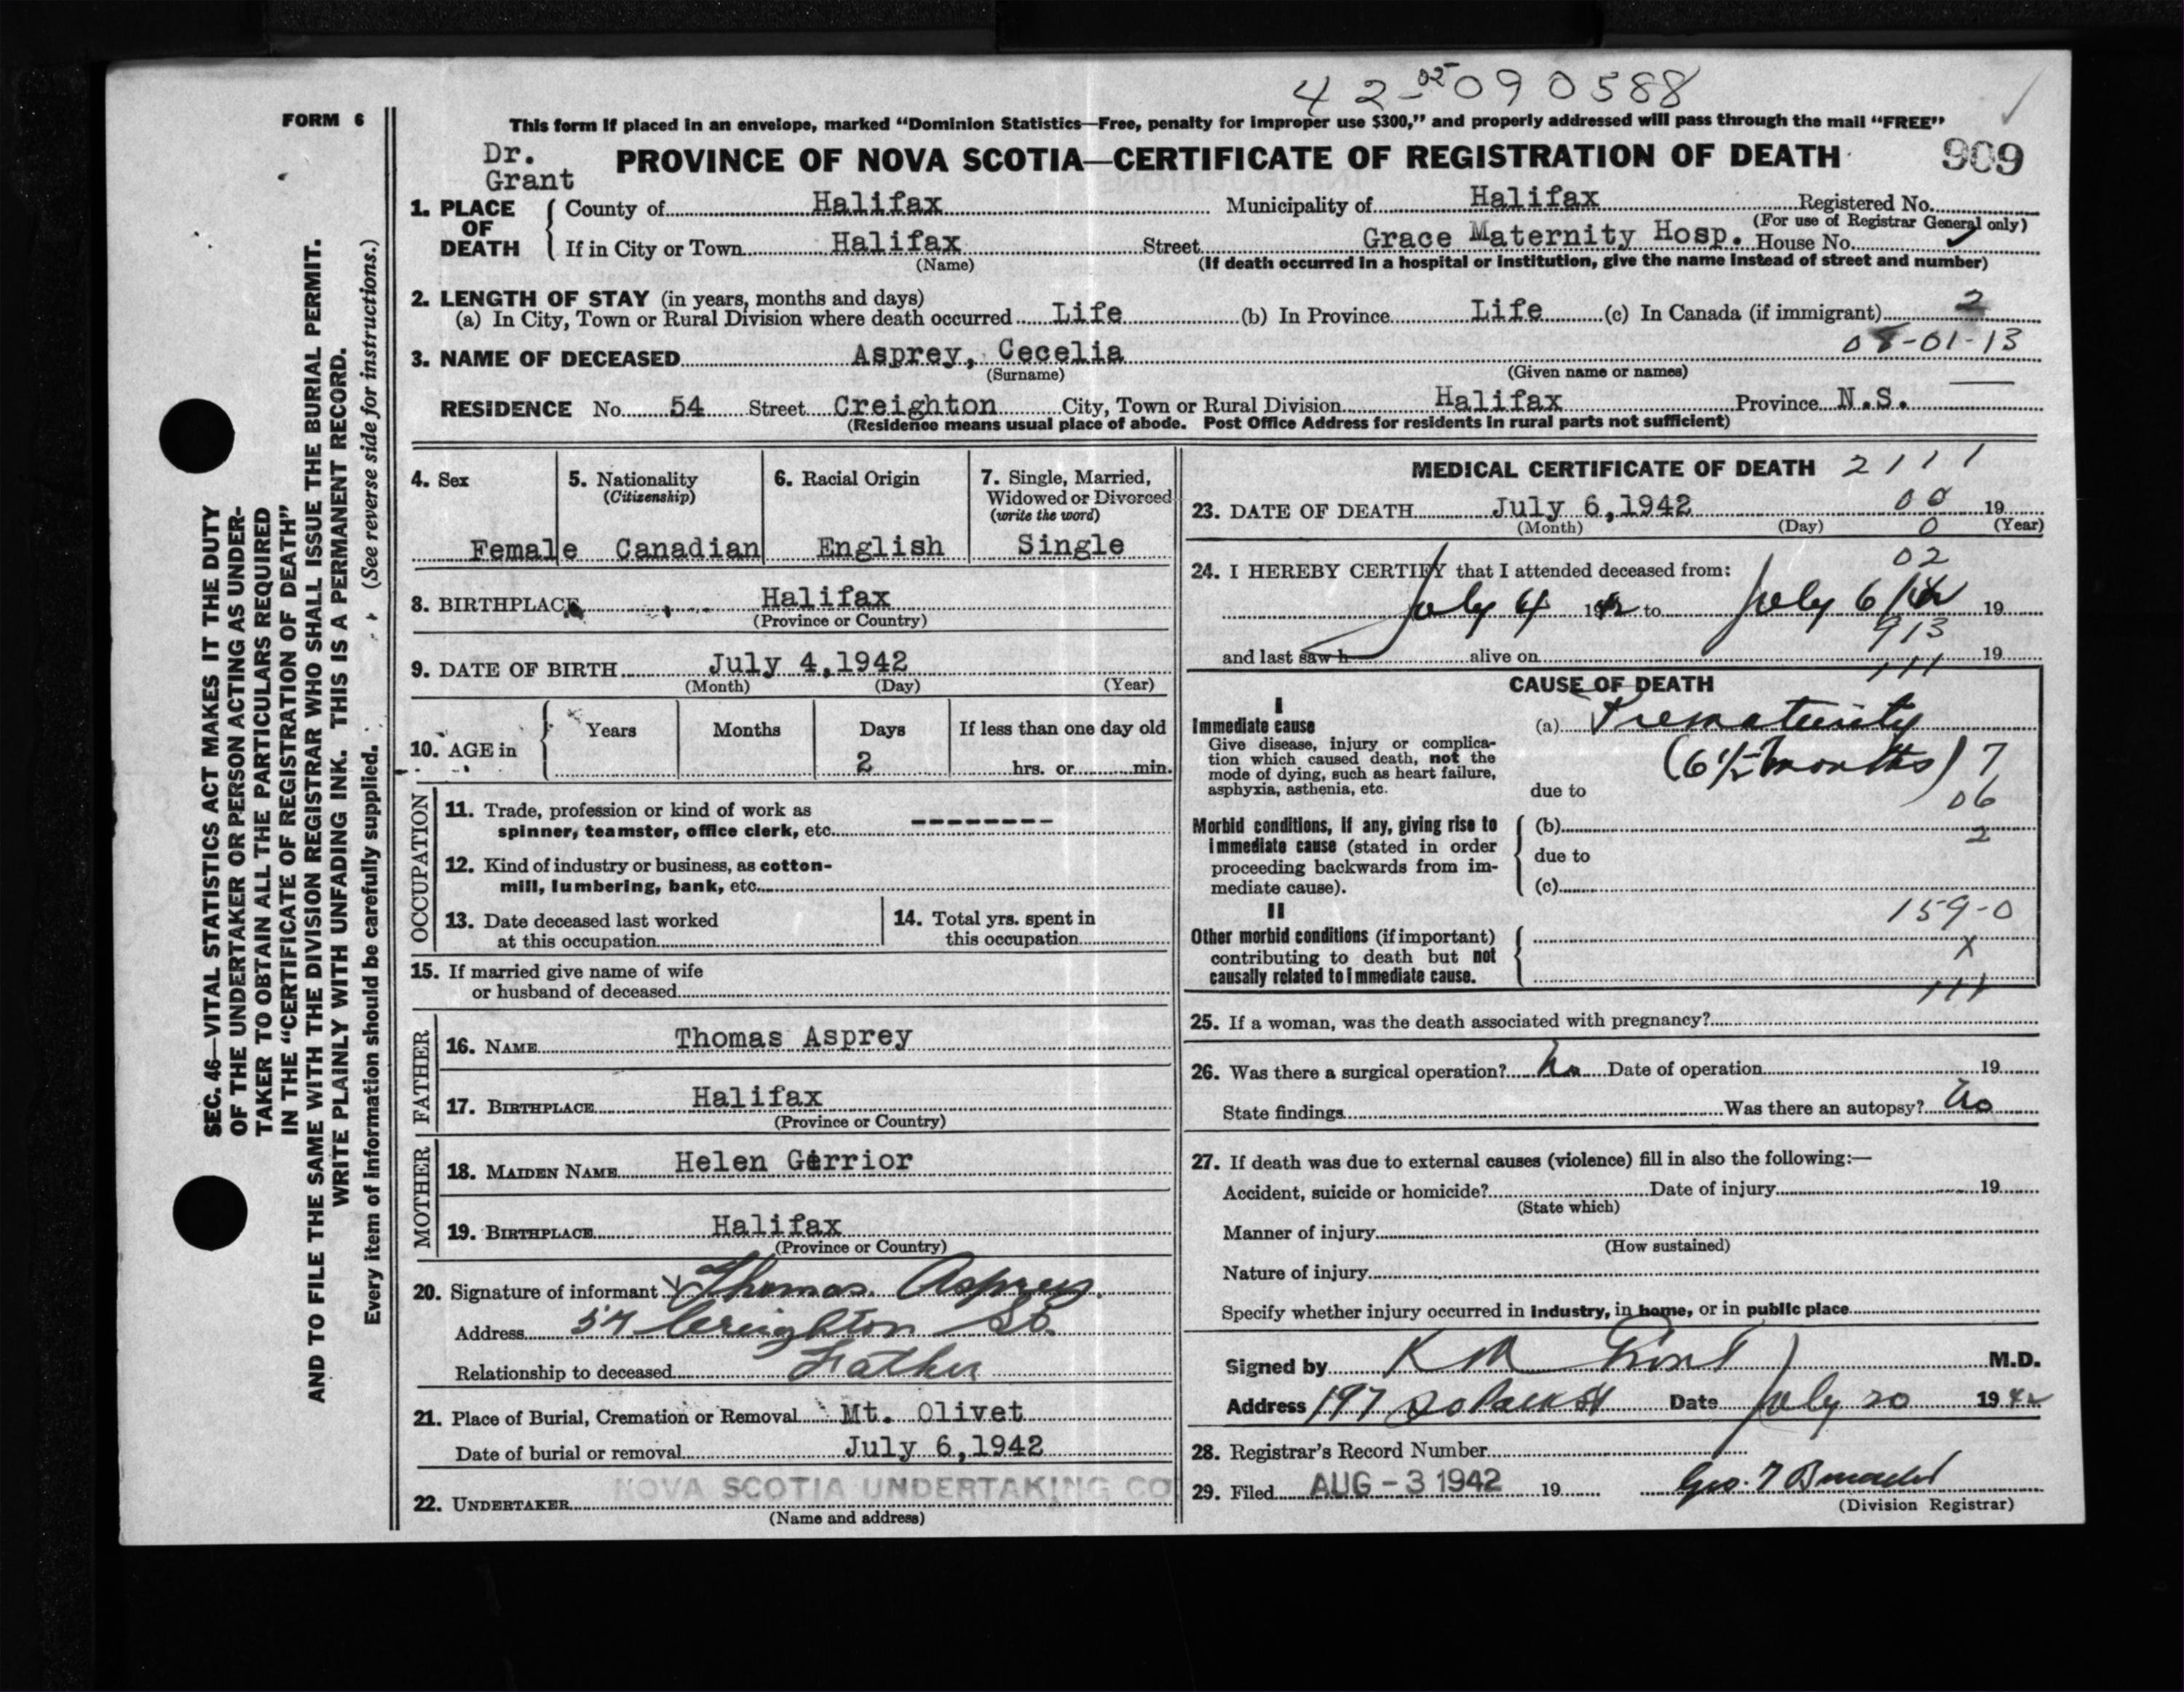 42-05 090588
FORM 6
This form if placed in an envelope, marked "Dominion Statistics—Free, penalty for improper use $300," and properly addressed will pass through the mail "FREE"
Dr.
Grant
PROVINCE OF NOVA SCOTIA—CERTIFICATE OF REGISTRATION OF DEATH
909
1. PLACE OF DEATH
County of Halifax Municipality of Halifax Registered No.
(For use of Registrar General only)
If in City or Town Halifax Street Grace Maternity Hosp. House No.
(Name) (If death occurred in a hospital or institution, give the name instead of street and number)
2. LENGTH OF STAY (in years, months and days)
(a) In City, Town or Rural Division where death occurred Life (b) In Province Life (c) In Canada (if immigrant) 2
3. NAME OF DECEASED Asprey, Cecelia -01-13
(Surname) (Given name or names)
RESIDENCE No. 54 Street Creighton City, Town or Rural Division Halifax Province N.S.
(Residence means usual place of abode. Post Office Address for residents in rural parts not sufficient)
4. Sex
Female
5. Nationality
(Citizenship)
Canadian
6. Racial Origin
English
7. Single, Married,
Widowed or Divorced
(write the word)
Single
8. BIRTHPLACE Halifax
(Province or Country)
9. DATE OF BIRTH July 4,1942
(Month) (Day) (Year)
10. AGE in
Years Months Days If less than one day old
2 hrs. or min.
OCCUPATION
11. Trade, profession or kind of work as
spinner, teamster, office clerk, etc. --------
12. Kind of industry or business, as cotton-
mill, lumbering, bank, etc.
13. Date deceased last worked
at this occupation
14. Total yrs. spent in
this occupation
15. If married give name of wife
or husband of deceased
FATHER
16. NAME Thomas Asprey
17. BIRTHPLACE Halifax
(Province or Country)
MOTHER
18. MAIDEN NAME Helen Gerrior
19. BIRTHPLACE Halifax
(Province or Country)
20. Signature of informant Thomas Asprey.
Address 54 Creighton St.
Relationship to deceased Father
21. Place of Burial, Cremation or Removal Mt. Olivet
Date of burial or removal July 6,1942
22. UNDERTAKER NOVA SCOTIA UNDERTAKING CO
(Name and address)
MEDICAL CERTIFICATE OF DEATH 2111
23. DATE OF DEATH July 6,1942 00 19
(Month) (Day) 0 (Year)
02
24. I HEREBY CERTIFY that I attended deceased from:
July 4 1942 to July 6/42 19
913
and last saw h alive on 19
111
CAUSE OF DEATH
I
Immediate cause
Give disease, injury or complica-
tion which caused death, not the
mode of dying, such as heart failure,
asphyxia, asthenia, etc.
(a) Prematurity
(6½ months) 7
due to
06
Morbid conditions, if any, giving rise to
immediate cause (stated in order
proceeding backwards from im-
mediate cause).
(b)
2
due to
(c)
II
159-0
Other morbid conditions (if important)
contributing to death but not
causally related to immediate cause.
X
111
25. If a woman, was the death associated with pregnancy?
26. Was there a surgical operation? No Date of operation 19
State findings Was there an autopsy? No
27. If death was due to external causes (violence) fill in also the following:—
Accident, suicide or homicide? Date of injury 19
(State which)
Manner of injury
(How sustained)
Nature of injury
Specify whether injury occurred in industry, in home, or in public place
Signed by K M Grant M.D.
Address 197 So Park St Date July 20 1942
28. Registrar's Record Number
29. Filed AUG -3 1942 19 Geo. 7
(Division Registrar)
SEC. 46—VITAL STATISTICS ACT MAKES IT THE DUTY
OF THE UNDERTAKER OR PERSON ACTING AS UNDER-
TAKER TO OBTAIN ALL THE PARTICULARS REQUIRED
IN THE "CERTIFICATE OF REGISTRATION OF DEATH"
AND TO FILE THE SAME WITH THE DIVISION REGISTRAR WHO SHALL ISSUE THE BURIAL PERMIT.
WRITE PLAINLY WITH UNFADING INK. THIS IS A PERMANENT RECORD.
Every item of information should be carefully supplied. (See reverse side for instructions.)